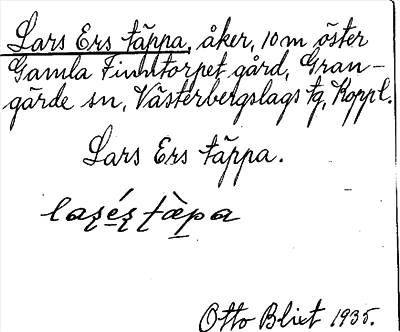 Lars Ers täppa, åker, 10 m öster
Gamla Finntorpet gård, Gran-
gärde sn, Västerbergslags tg, Koppl.
Lars Ers täppa.
Otto Blixt 1935.